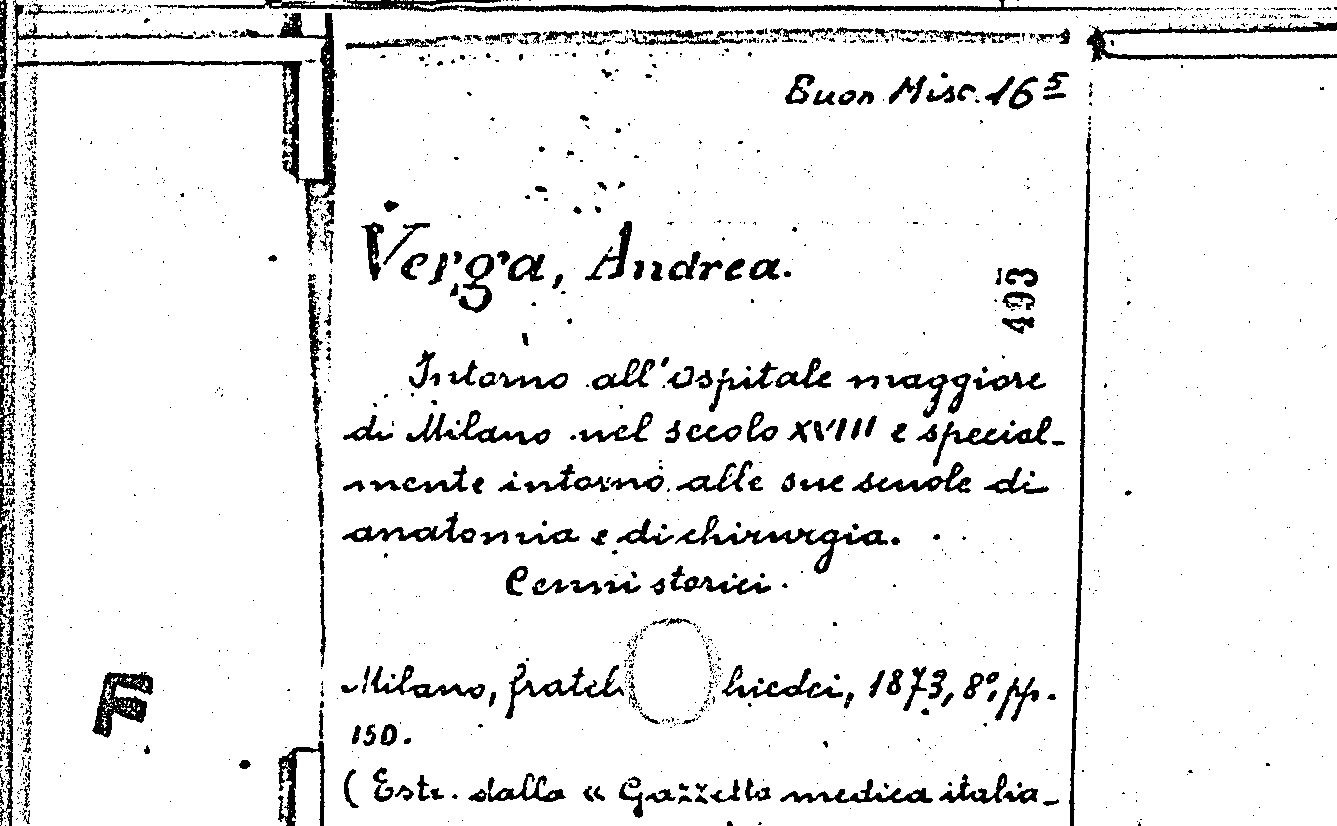 Buon Misc. 16 5
Verga, Andrea.
493
Intorno all'Ospitale maggiore
di Milano nel secolo XVIII e special-
mente intorno alle sue scuole di
anatomia e di chirurgia.
Cenni storici.
Milano, 1873, 8°, pp.
150.
(Estr. dalla « Gazzetta medica italia-
F